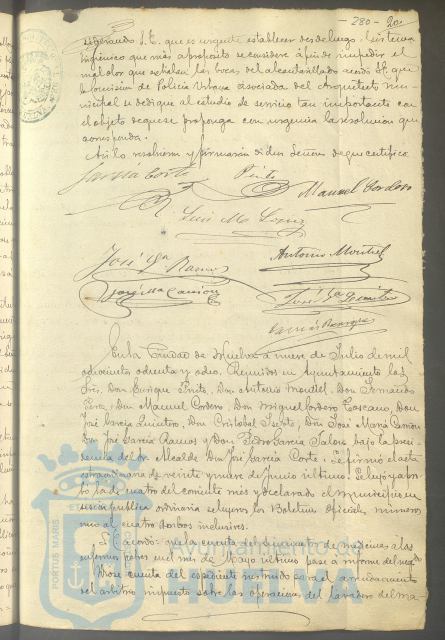 - 280 - 20
S.E. que es urgente establecer desde luego
higienico que mas aproposito se considere á fin de impedir el
mal olor que exhalan las bocas del alcantarillado acordó S.E. que
la comision de Policia Urbana asociada del Arquitecto mu-
nicipal se dedique al estudio de servicio tan importante con
el objeto de que se proponga con urgencia la resolucion que
corresponda.
Asi lo resolvieron y firmarán dichos Señores de que certifico
Garcia Corte Pinto Manuel Cordero
José Ga Ramos Antonio Montiel
José Ma Carrion José Ga Quintero
En la Ciudad de Huelva a nueve de Julio de mil
ochocientos ochenta y ocho. Reunidos en Ayuntamiento los
Sres. Don Enrique Pinto, Don Antonio Montiel, Don Fernando
Don Manuel Cordero, Don Miguel Cordero Toscano, Don
José Garcia Quintero, Don Cristobal Don José Maria Carrion
Don José Garcia Ramos y Don Pedro Garcia bajo la presi-
dencia del Sr. Alcalde Don José Garcia Corte. Se firmó el acta
extraordinaria de veinte y nueve de Junio último. Se leyó y apro-
bó la de cuatro del corriente mes y declarado el
sesion publica ordinaria se leyeron los Boletines Oficiales, numeros
uno al cuatro ambos inclusives.
Se Acordó: que la cuenta del suministro de medicinas á los
enfermos pobres en el mes de Mayo último pase á informe del
Dióse cuenta del expediente instruido para el arrendamiento
del arbitrio impuesto sobre las operaciones del
Ayuntamiento de
HUELVA
PORTUS MARIS